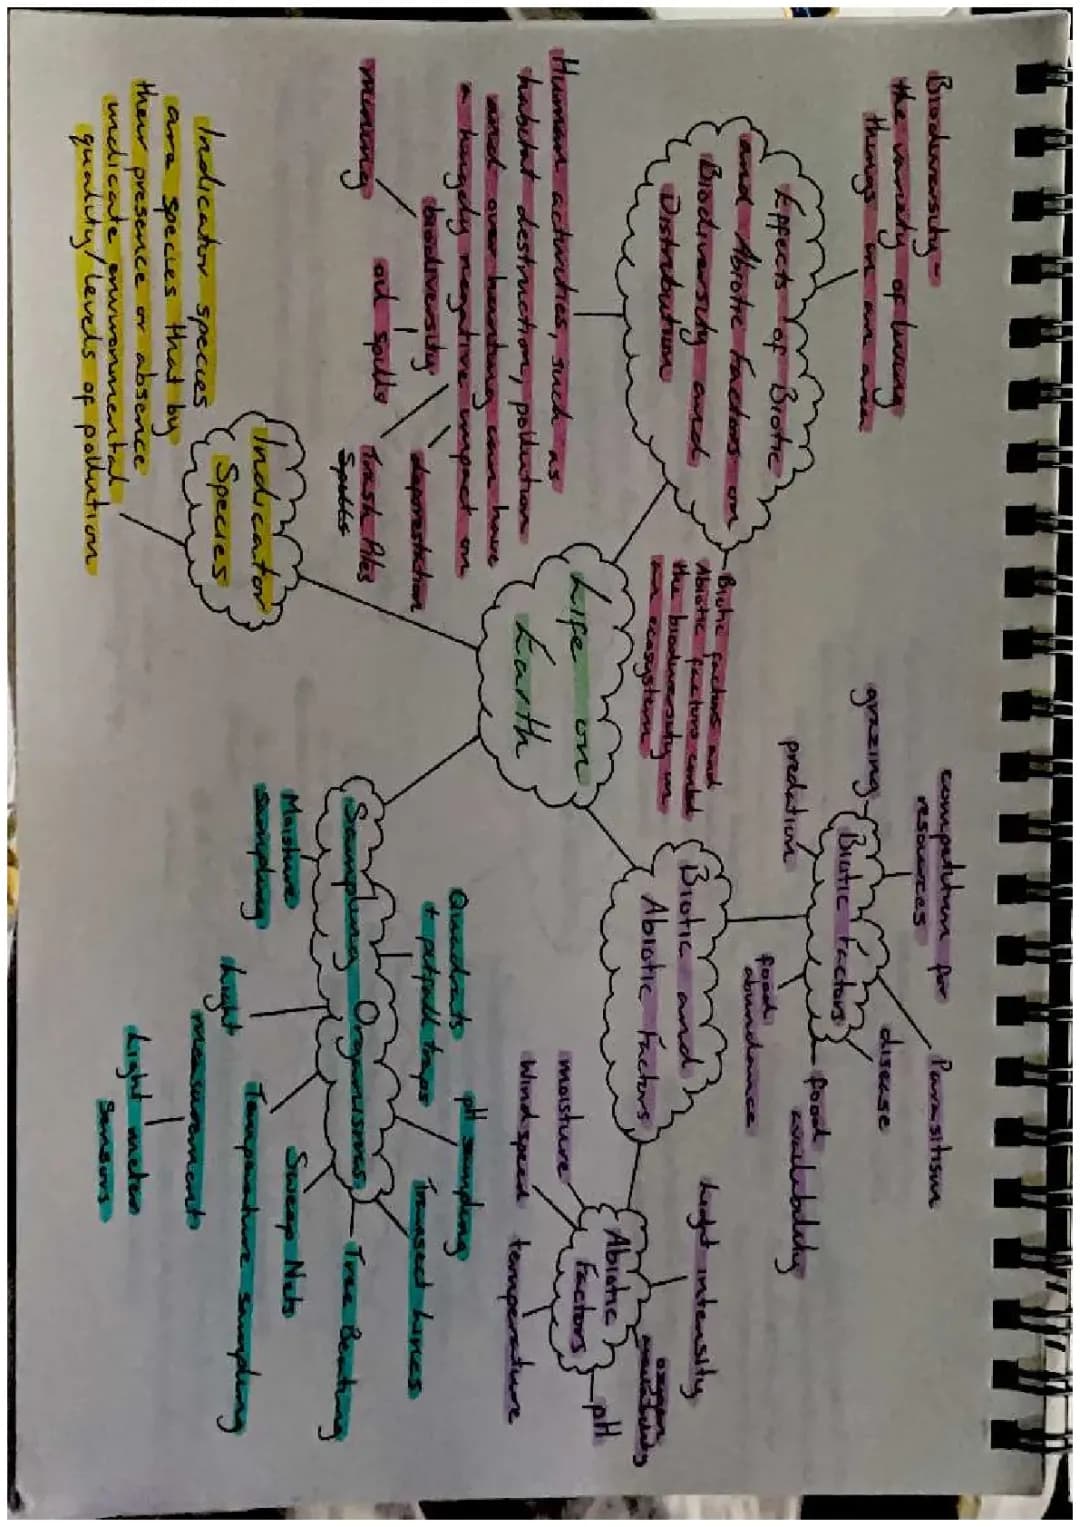 Biodiversity -
the variety of living
things in an area
Effects of Biotic
and Abiotic Factors on
Biodiversity and
Distribution
Biotic factors and
Abiotic factors control
the biodiversity in
an ecosystem
Human activities, such as
habitat destruction, pollution
and over hunting can have
a hugely negative impact on
biodiversity
mining
oil spills
Trash Piles
deforestaction
Life on
Earth
Indicator
Species
Indicator species
are species that by
their presence or absence
indicate environmental
quality/levels of pollution
Biotic and
Abiotic Factors
Biotic Factors
competition for
resources
Parasitism
disease
food
availability
food
abundance
predation
grazing
Abiotic
Factors
Light intensity
oxygen
availability
pH
temperature
Wind speed
moisture
Sampling Organisms
Quadrats
+ pitfall traps
pH sampling
Transect Lines
Tree Beating
Sweep Nets
Temperature sampling
Light
measurment
Light meter
Sensors
Moisture
sampling